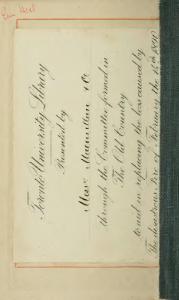 Toronto University Library
Presented by
Messrs Macmillan & Co
through the Committee formed in
The Old Country
to aid in replacing the loss caused by
The disastrous Fire of February the 14th 1890